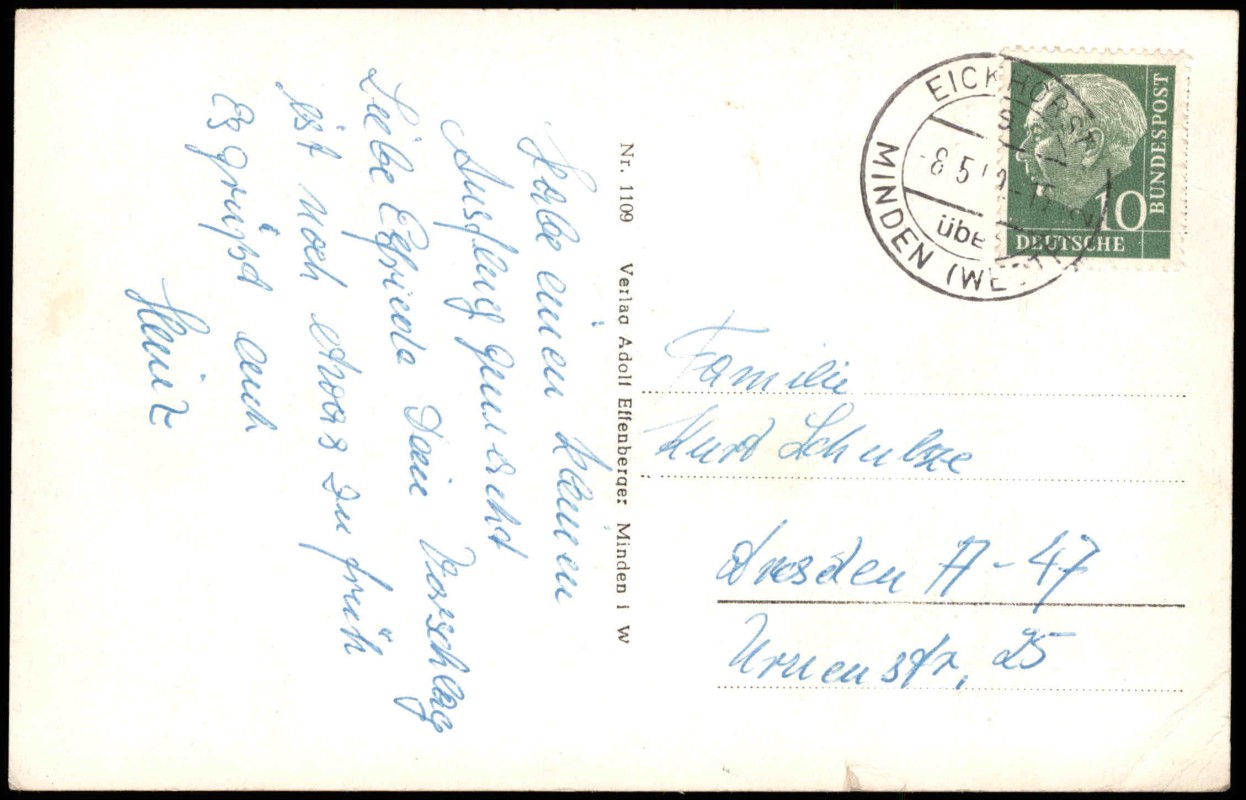 Habe einen kleinen
Ausflug gemacht
Liebe Elfriede Dein Vorschlag
ist noch etwas zu früh
Es grüßt euch
Heinz
Nr. 1109 Verlag Adolf Effenberger Minden i W
EICKHORST
über
MINDEN (WESTF
-8.5.
BUNDESPOST
10
DEUTSCHE
Familie
Kurt Schulze
Dresden A-47
Urnenstr. 25